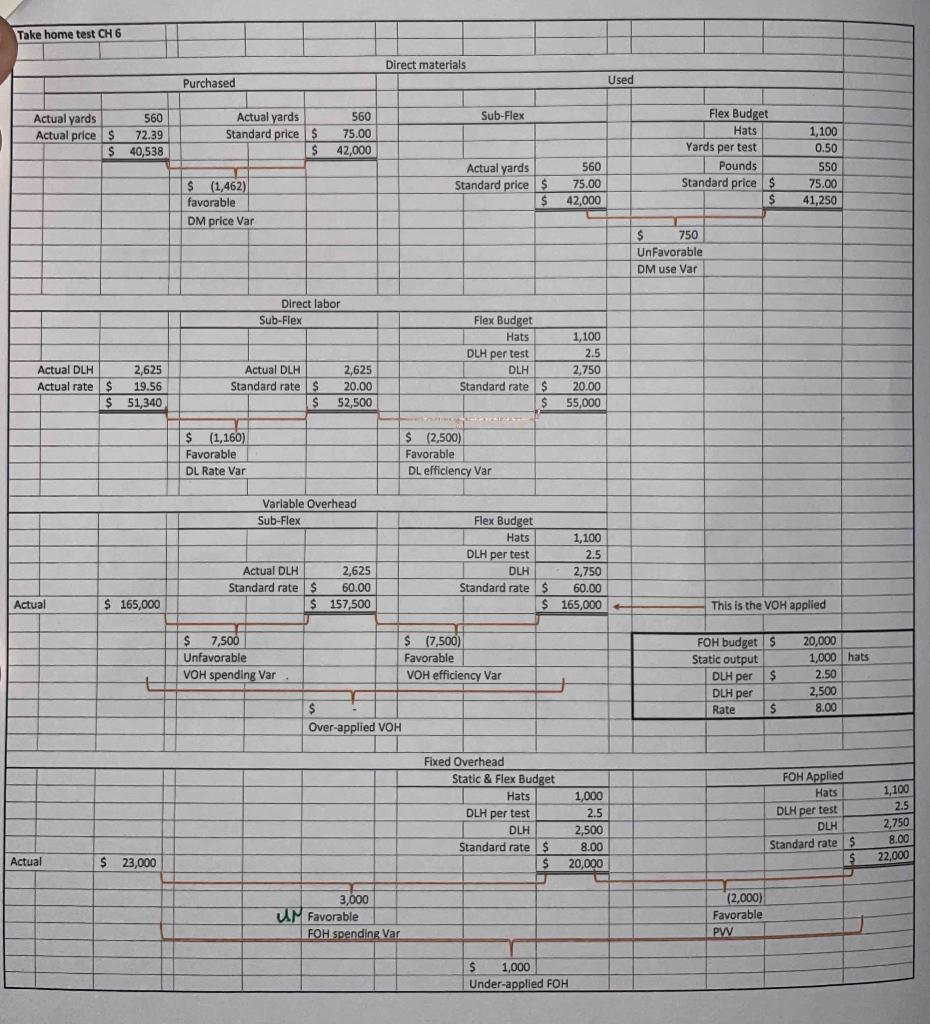 Take home test CH 6
Direct materials
Purchased Used
Actual yards 560 Actual yards 560 Sub-Flex Flex Budget
Actual price $ 72.39 Standard price $ 75.00 Hats 1,100
$ 40,538 $ 42,000 Yards per test 0.50
Actual yards 560 Pounds 550
$ (1,462) Standard price $ 75.00 Standard price $ 75.00
favorable $ 42,000 $ 41,250
DM price Var
$ 750
UnFavorable
DM use Var
Direct labor
Sub-Flex Flex Budget
Hats 1,100
DLH per test 2.5
Actual DLH 2,625 Actual DLH 2,625 DLH 2,750
Actual rate $ 19.56 Standard rate $ 20.00 Standard rate $ 20.00
$ 51,340 $ 52,500 $ 55,000
$ (1,160) $ (2,500)
Favorable Favorable
DL Rate Var DL efficiency Var
Variable Overhead
Sub-Flex Flex Budget
Hats 1,100
DLH per test 2.5
Actual DLH 2,625 DLH 2,750
Standard rate $ 60.00 Standard rate $ 60.00
Actual $ 165,000 $ 157,500 $ 165,000 This is the VOH applied
$ 7,500 $ (7,500) FOH budget $ 20,000
Unfavorable Favorable Static output 1,000 hats
VOH spending Var . VOH efficiency Var DLH per $ 2.50
DLH per 2,500
$ - Rate $ 8.00
Over-applied VOH
Fixed Overhead
Static & Flex Budget FOH Applied
Hats 1,000 Hats 1,100
DLH per test 2.5 DLH per test 2.5
DLH 2,500 DLH 2,750
Standard rate $ 8.00 Standard rate $ 8.00
Actual $ 23,000 $ 20,000 $ 22,000
3,000 (2,000)
UN Favorable Favorable
FOH spending Var PVV
$ 1,000
Under-applied FOH